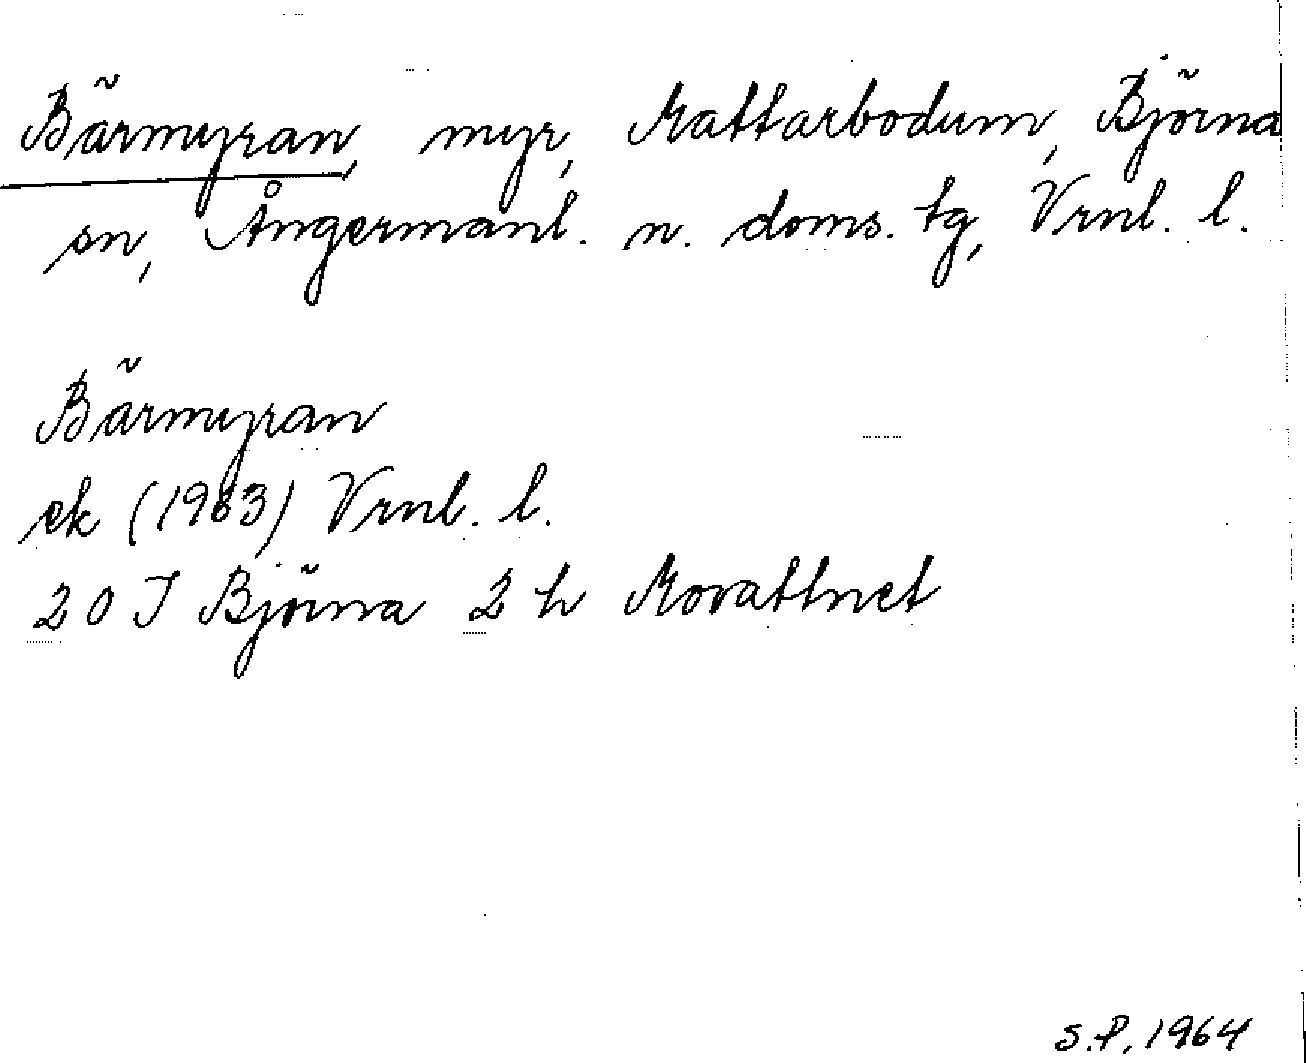 Bärmyran, myr, Mattarbodum, Björna
sn, Ångermanl. n. doms. tg, Vrnl. l.
Bärmyran
ek (1963) Vrnl. l.
20 I Björna 2 h Movattnet
S.P. 1964